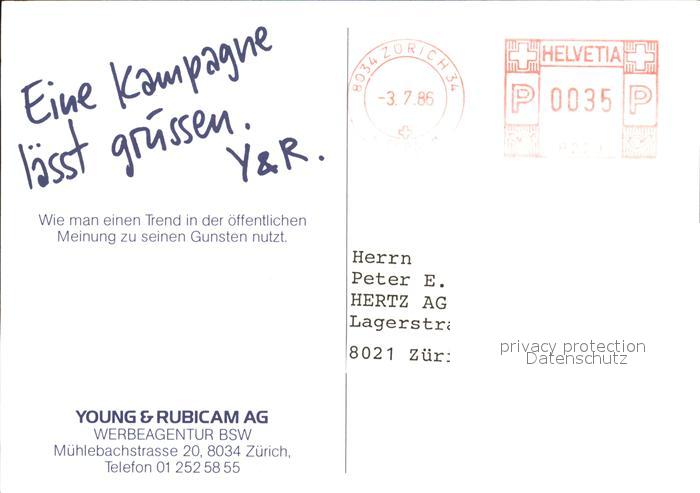 Eine Kampagne
lässt grüssen.
Y&R.
Wie man einen Trend in der öffentlichen
Meinung zu seinen Gunsten nutzt.
YOUNG & RUBICAM AG
WERBEAGENTUR BSW
Mühlebachstrasse 20, 8034 Zürich,
Telefon 01 252 58 55
8034 ZÜRICH 34
-3.7.86
HELVETIA
P 0035 P
Herrn
Peter E.
HERTZ AG
Lagerstra
8021 Züri
privacy protection
Datenschutz